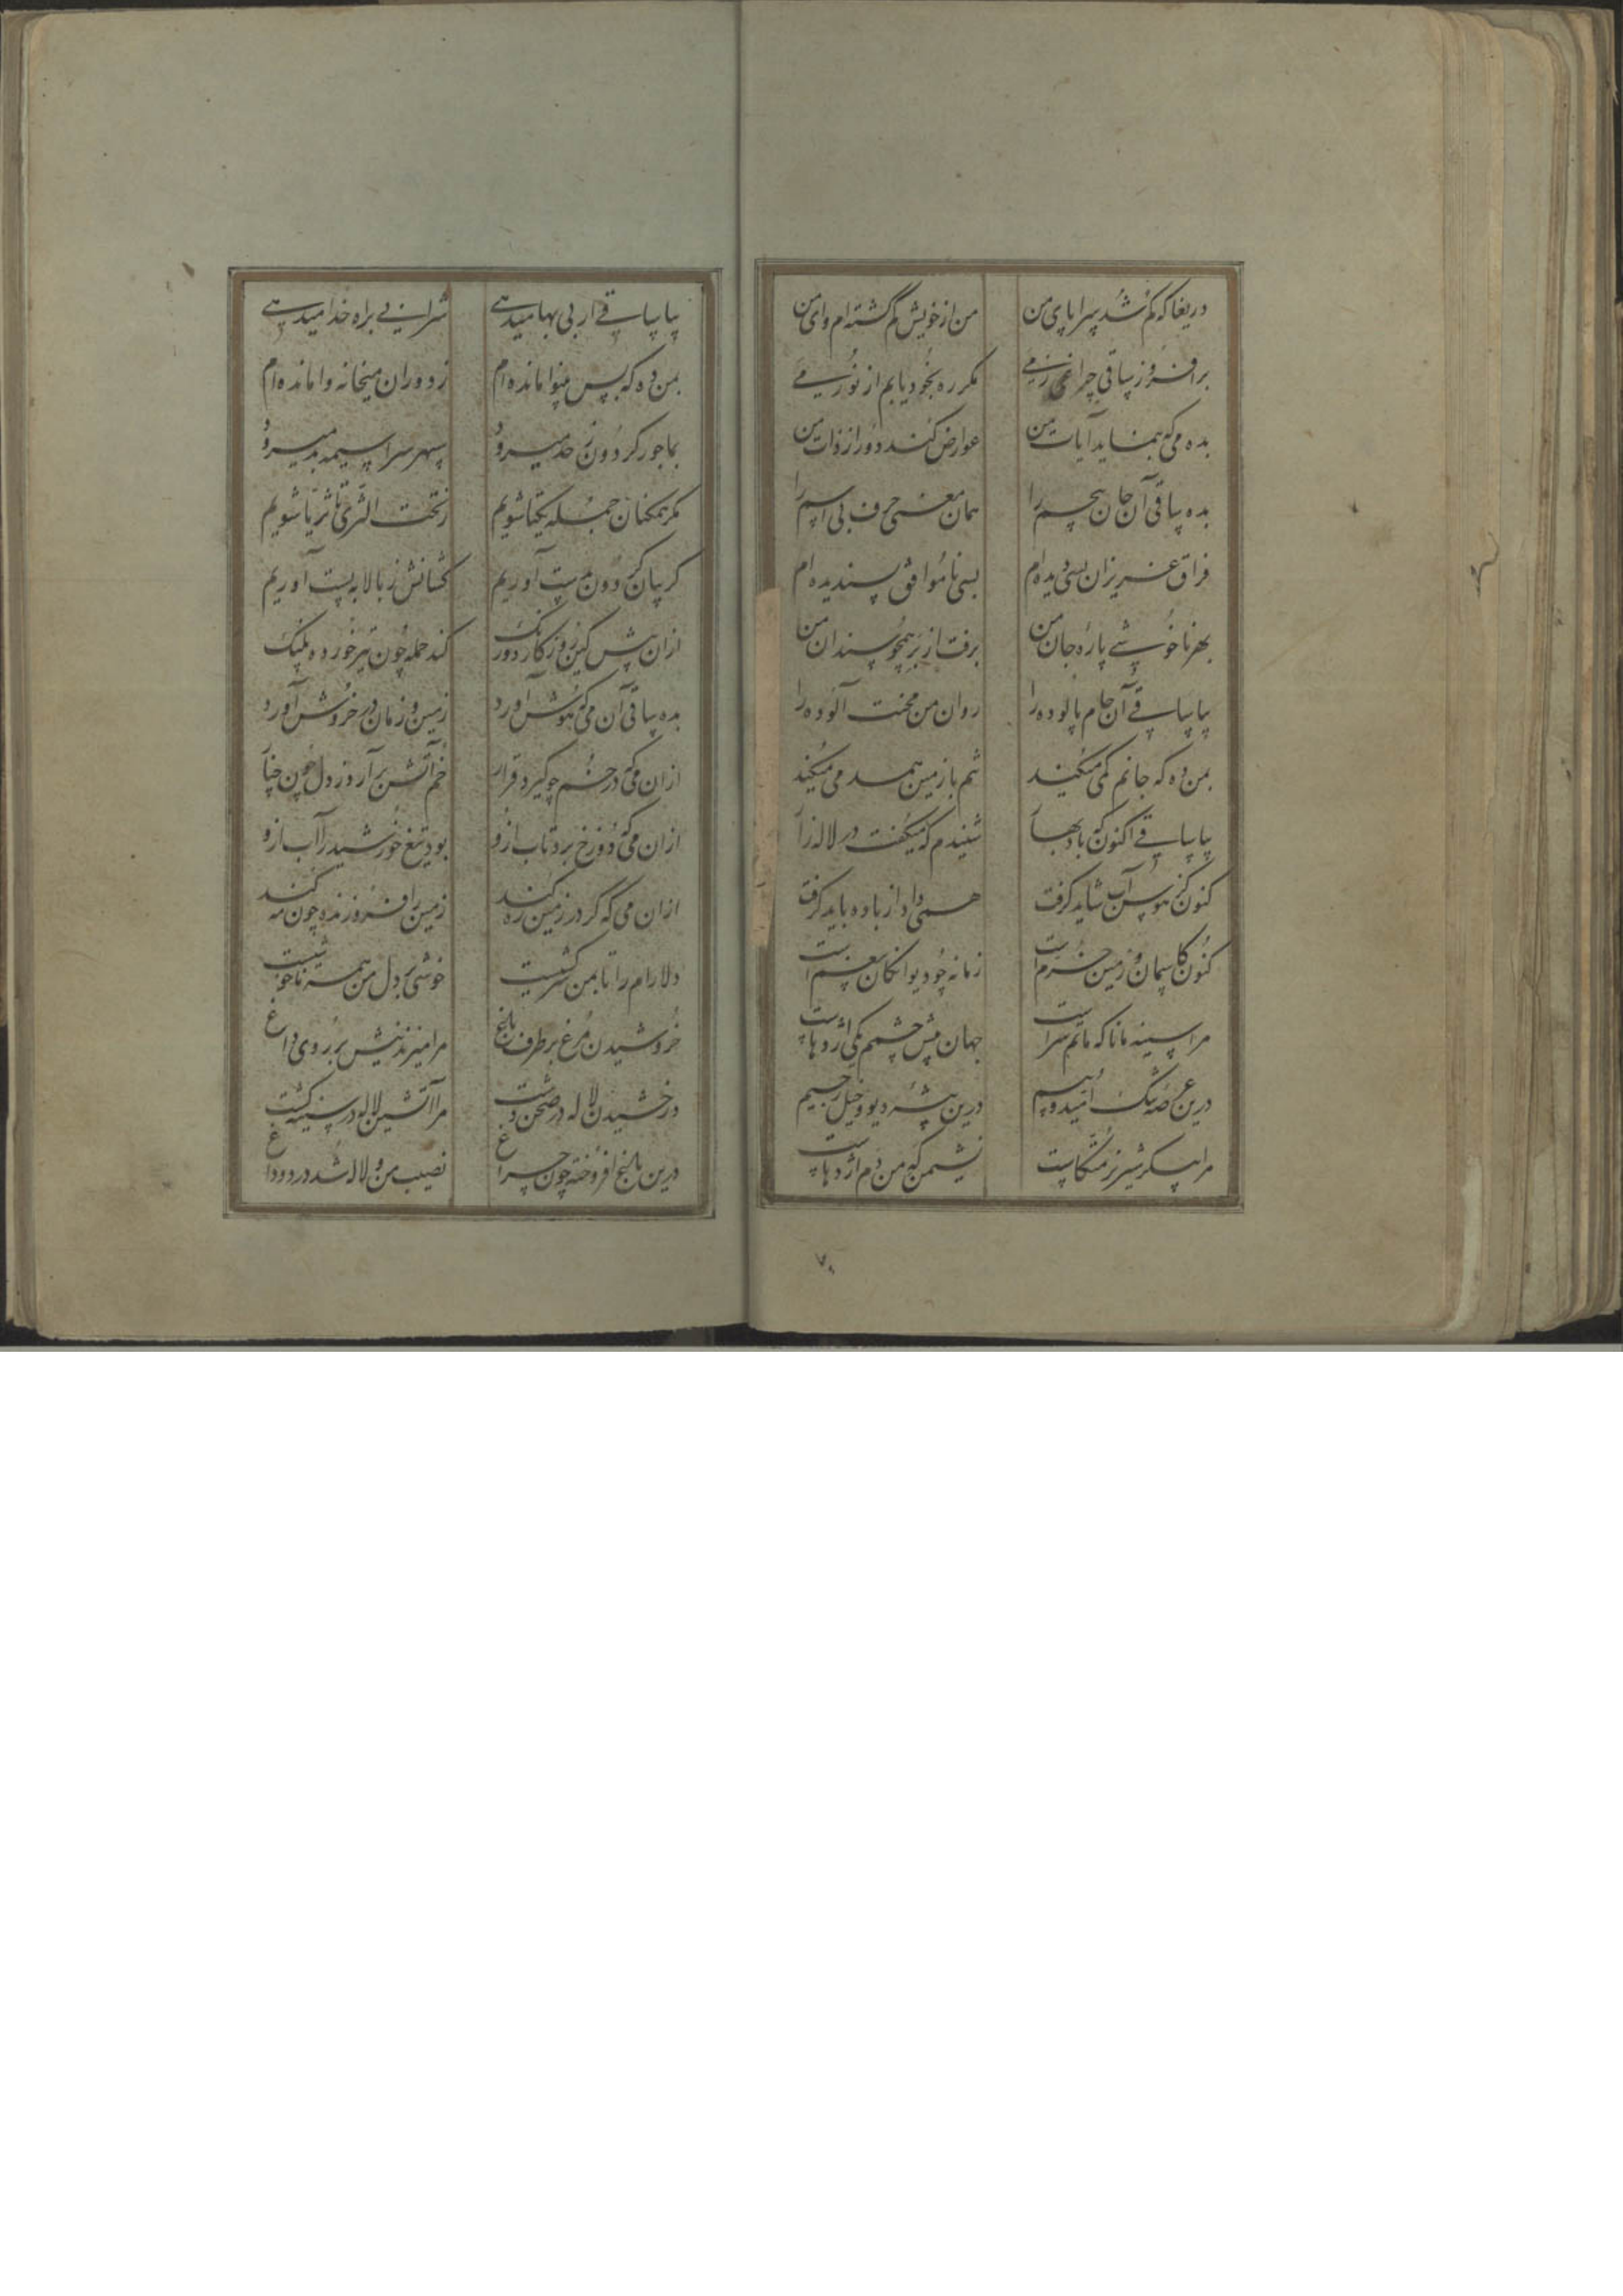 دریغا که گم شد سراپای من من از خویش گم گشته ام وای من
برافروز ساقی چراغی ز می مگر ره بخود یابم از نور می
بده می که بنماید آیات من عوارض کند دور از ذات من
بده ساقی آن جان بی جسم را همان معنی حرف بی اسم را
فراق عزیزان بسی دیده ام بسی ناموافق پسندیده ام
بهر ناخوشی پاره جان من برفت از بر همچو سندان من
بیا ساقی آن جام پالوده را روان من محنت آلوده را
بمن ده که جانم کمی میکند تنم با زمین همدمی میکند
بیا ساقی اکنون که باد بهار شنیدم که میگفت در لاله زار
کنون کز هوس آب شاید گرفت همی داد از باده باید گرفت
کنون کاسمان و زمین خرم است زمانه چو دیوانگان بیغم است
مرا سینه مانا که ماتم سراست جهان پیش چشمم یکی اژدهاست
درین عرصه تنگ امید و بیم درین بیشه دیو و خیل رجیم
مرا پیکر شیر نر متکاست نشیمن که من دم اژدهاست
۷۰
بیا ساقی ار بی بها میدهی شرابی براه خدا میدهی
بمن ده که بس بینوا مانده ام ز دوران میخانه وامانده ام
بما جور گردون ز حد میرود سپهر سراسیمه بد میرود
مگر همگنان جمله یکتا شویم ز تحت الثری تا ثریا شویم
گریبان گردون بدست آوریم کشانش ز بالا به پست آوریم
ازان پیش کین روزگار دورنگ کند حمله چون تیر خورده پلنگ
بده ساقی آن می که هوش آورد زمین و زمان در خروش آورد
ازان می که در خم چو گیرد قرار خم آتش برآرد ز دل چون چنار
ازان می که دوزخ برد تاب ازو بود تیغ خورشید را آب ازو
ازان می که گر در زمین ره کند زمین را فروزنده چون مه کند
دلارام را تا بمن سرکشیست خوشی بر دل من همه ناخوشیست
خروشیدن مرغ بر طرف باغ مرا میزند نیش بر روی داغ
درخشیدن لاله در صحن دشت مرا آتشین لاله در سینه کشت
درین باغ افروخته چون چراغ نصیب من و لاله شد درد و داغ